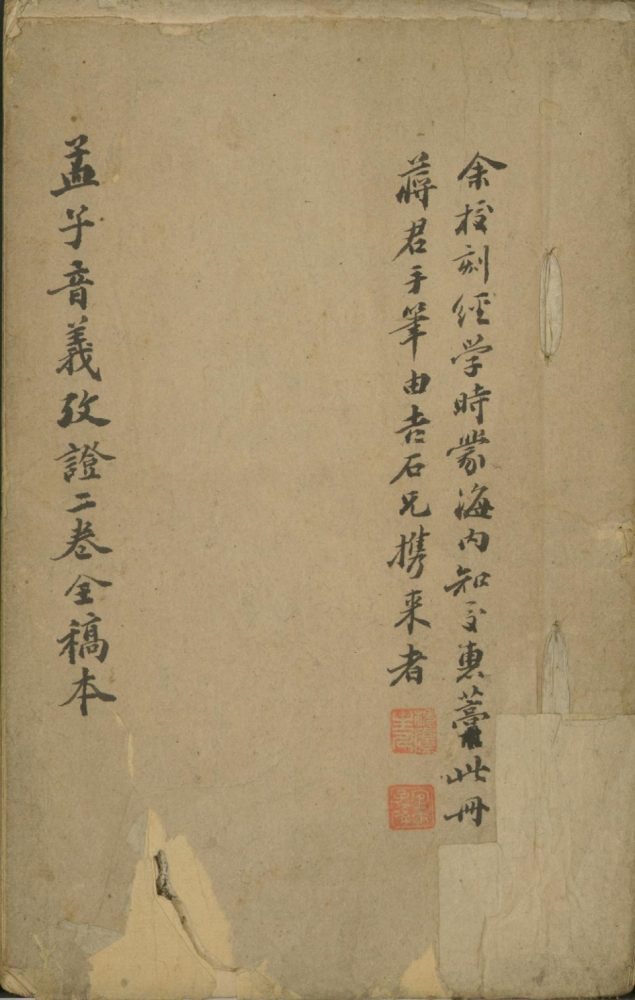 余校刻經学時蒙海内知交惠藳此冊
蔣君手筆由吉石兄攜来者
孟子音義攷證二卷全稿本